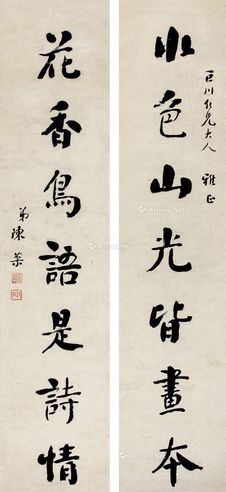 巨川仁兄大人 雅正
水色山光皆畫本
花香鳥語是詩情
弟陳棻